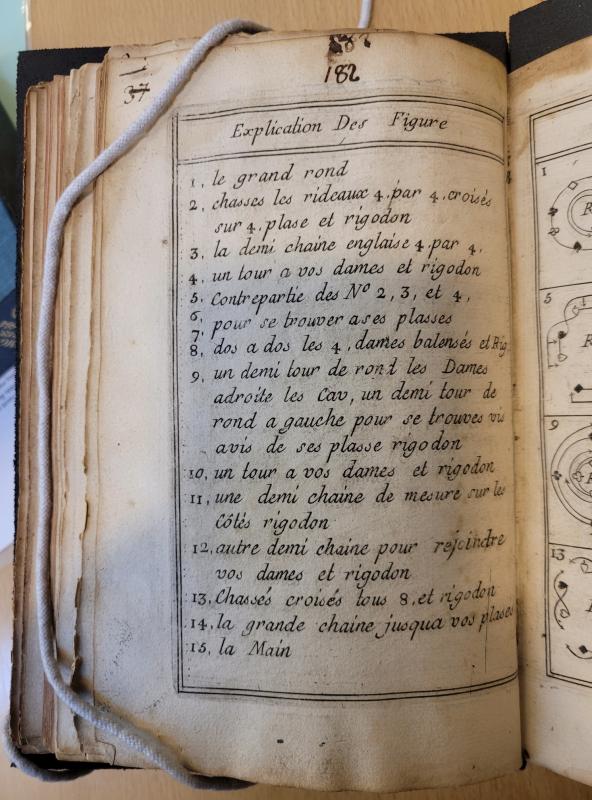 37
182
Explication Des Figure
1, le grand rond
2, chasses les rideaux 4, par 4, croisés
sur 4, plase et rigodon
3, la demi chaine englaise 4, par 4,
4, un tour a vos dames et rigodon
5, Contrepartie des Nº 2, 3, et 4,
6,
7, pour se trouver a ses plasses
8, dos a dos les 4, dames balensés et Rig
9, un demi tour de rond les Dames
adroite les Cav, un demi tour de
rond a gauche pour se trouves vis
avis de ses plasse rigodon
10, un tour a vos dames et rigodon
11, une demi chaine de mesure sur les
Côtés rigodon
12, autre demi chaine pour rejoindre
vos dames et rigodon
13, Chassés croisés tous 8, et rigodon
14, la grande chaine jusqua vos plases
15, la Main
1
5
9
13